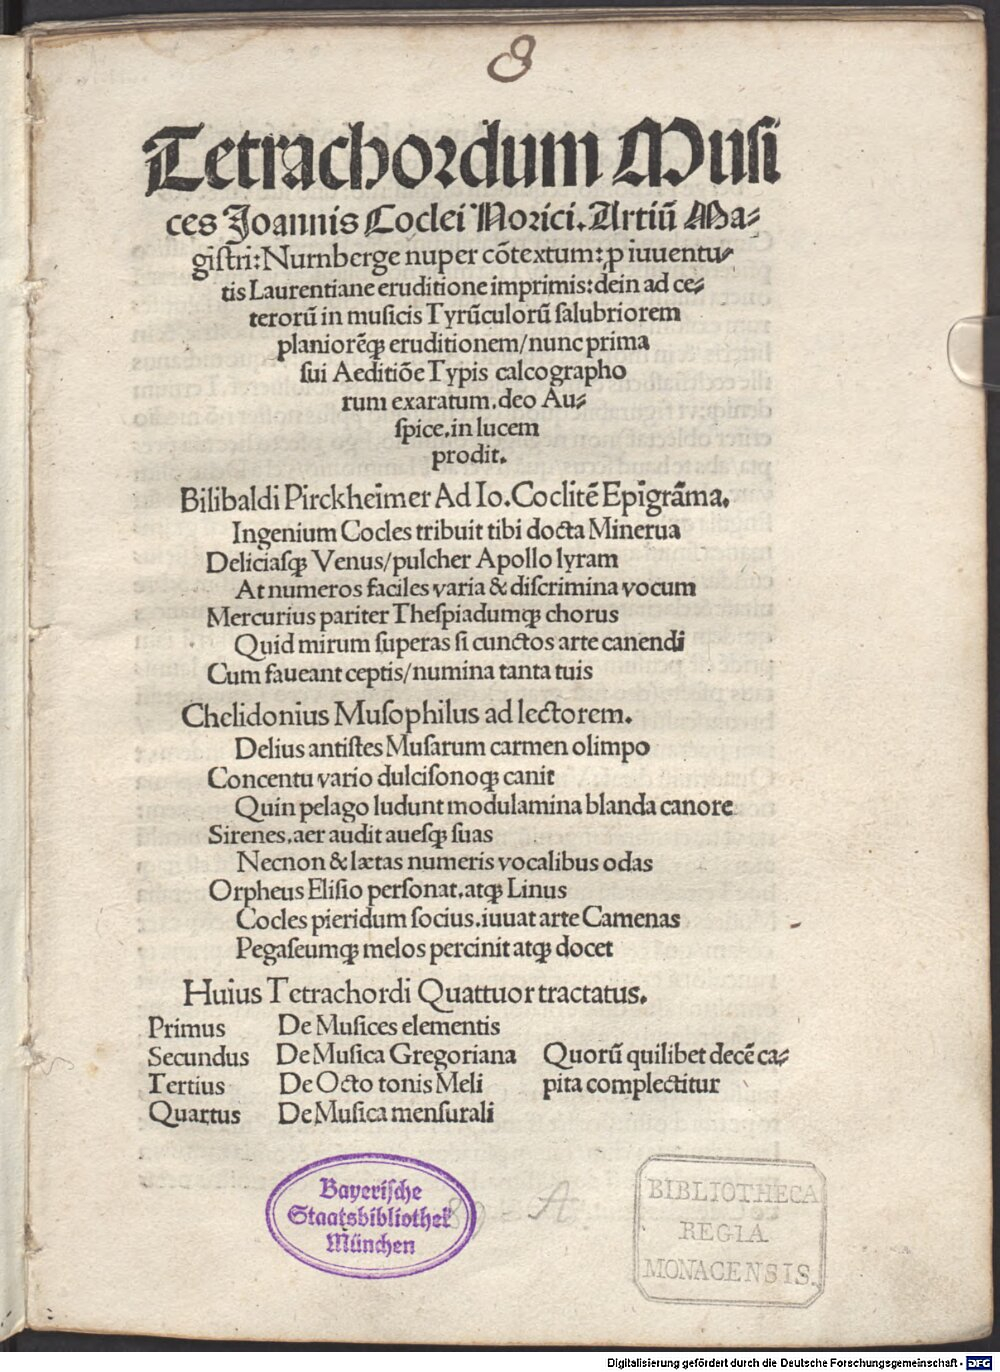 8
Tetrachordum Musi
ces Joannis Coclei Norici. Artiū Ma⸗
giſtri: Nurnberge nuper cōtextum: ꝓ iuuentu⸗
tis Laurentiane eruditione imprimis: dein ad ce⸗
terorū in muſicis Tyrūculorū ſalubriorem
planiorēqꝫ eruditionem/nunc prima
ſui Aeditiōe Typis calcographo
rum exaratum. deo Au⸗
ſpice. in lucem
prodit.
Bilibaldi Pirckheimer Ad Io. Coclitē Epigrāma.
Ingenium Cocles tribuit tibi docta Minerua
Deliciaſqꝫ Venus/pulcher Apollo lyram
At numeros faciles varia & diſcrimina vocum
Mercurius pariter Theſpiadumqꝫ chorus
Quid mirum ſuperas ſi cunctos arte canendi
Cum faueant ceptis/numina tanta tuis
Chelidonius Muſophilus ad lectorem.
Delius antiſtes Muſarum carmen olimpo
Concentu vario dulciſonoqꝫ canit
Quin pelago ludunt modulamina blanda canore
Sirenes. aer audit aueſqꝫ ſuas
Necnon & lætas numeris vocalibus odas
Orpheus Eliſio perſonat. atqꝫ Linus
Cocles pieridum ſocius. iuuat arte Camenas
Pegaſeumqꝫ melos percinit atqꝫ docet
Huius Tetrachordi Quattuor tractatus.
Primus De Muſices elementis
Secundus De Muſica Gregoriana Quorū quilibet decē ca⸗
Tertius De Octo tonis Meli pita complectitur
Quartus De Muſica menſurali
Bayerische
Staatsbibliothek
München
89 - A.
BIBLIOTHECA
REGIA
MONACENSIS.
Digitalisierung gefördert durch die Deutsche Forschungsgemeinschaft - DFG